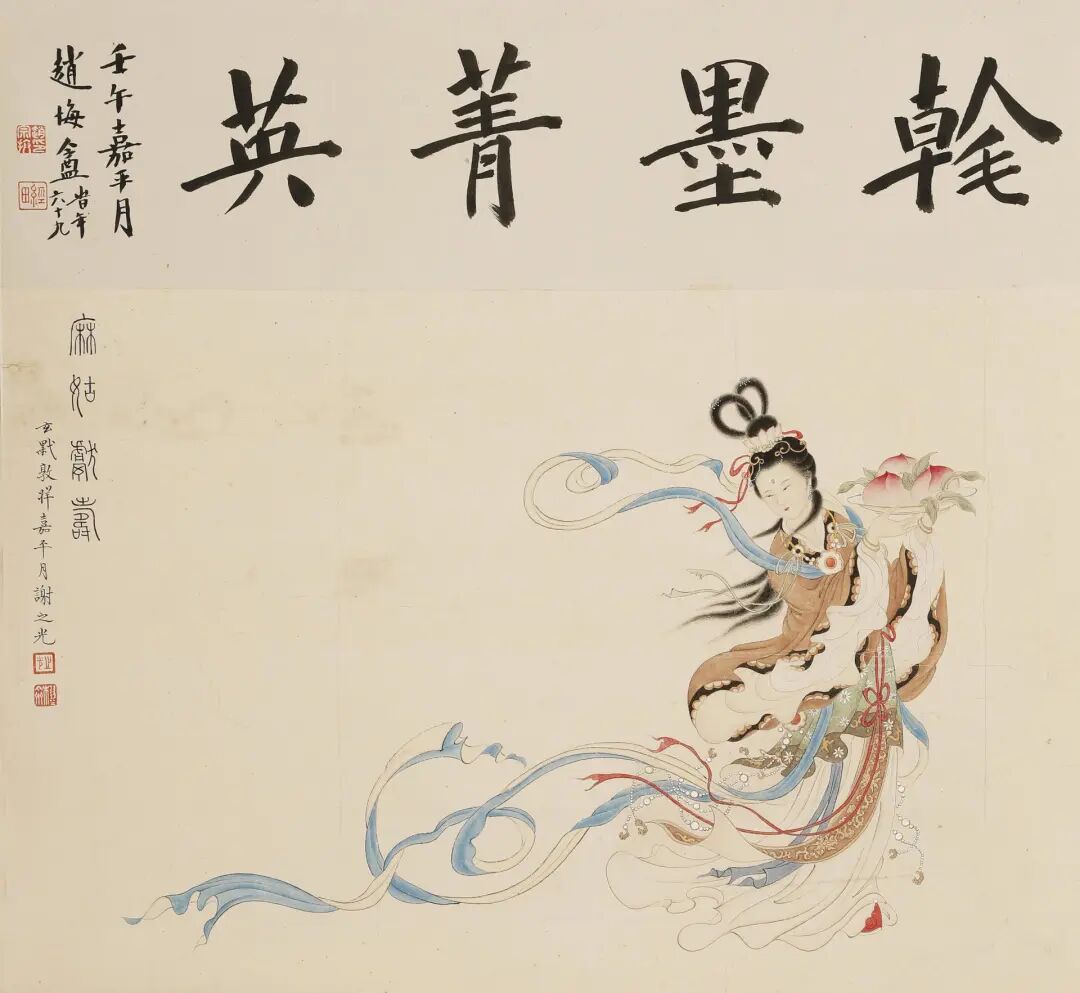 翰墨菁英
壬午嘉平月
趙悔盦
峕年
六十九
經田
麻姑獻壽
玄黓敦牂嘉平月謝之光